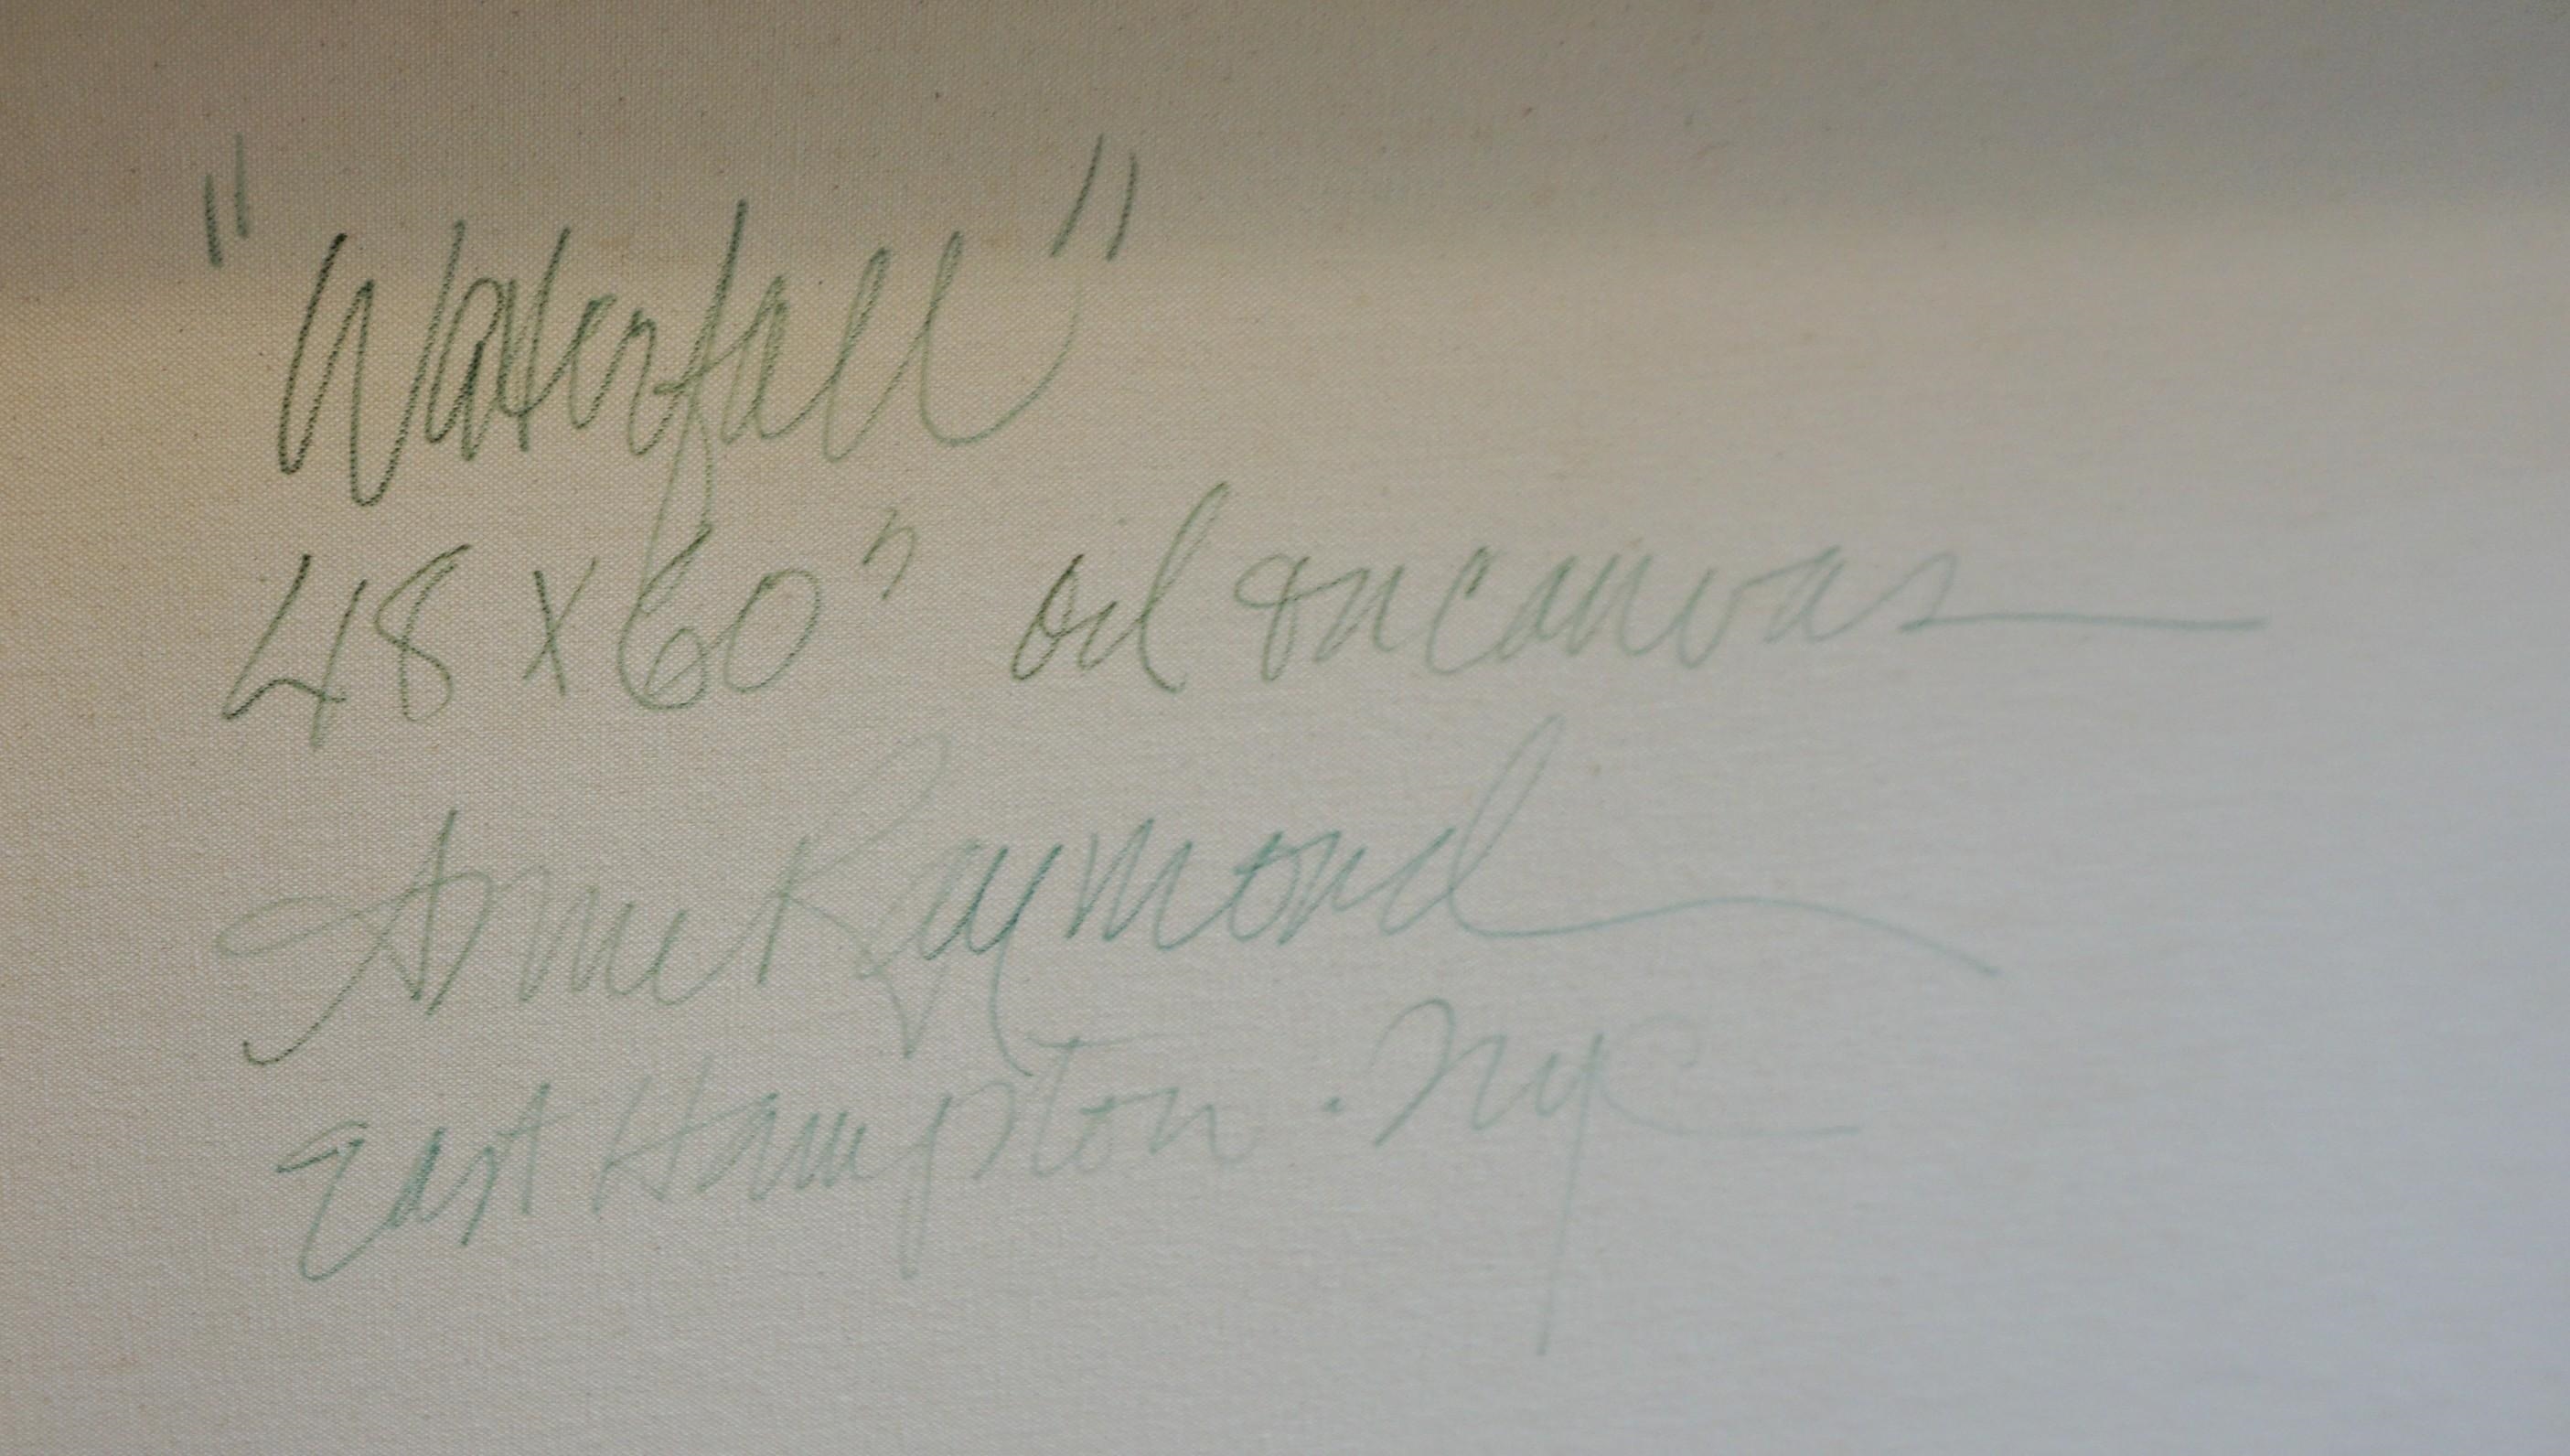 "Waterfall"
48 x 60" oil on canvas
Anne Raymond
East Hampton . NYC